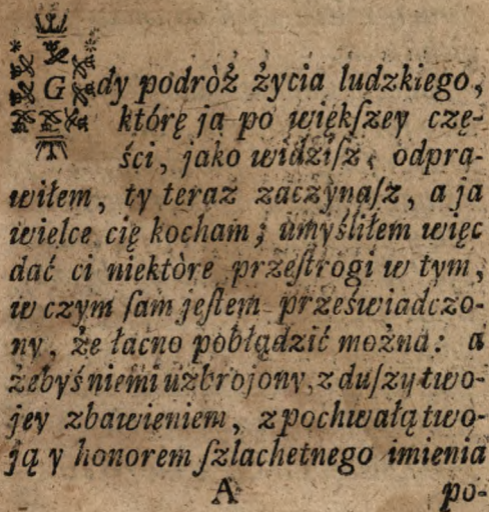 Gdy podròż życia ludzkiego,
którę ja po więkſzey czę-
ści, jako widziſz, odpra-
wiłem, ty teraz zaczynaſz, a ja
wielce cię kocham; umyśliłem więc
dać ci niektòre przeſtrogi w tym,
w czym ſam jeſtem przeświadczo-
ny, że łacno pobłądzić można: a
żebyś niemi uzbrojony, z duſzy two-
jey zbawieniem, z pochwałą two-
ją y honorem ſzlachetnego imienia
A po-